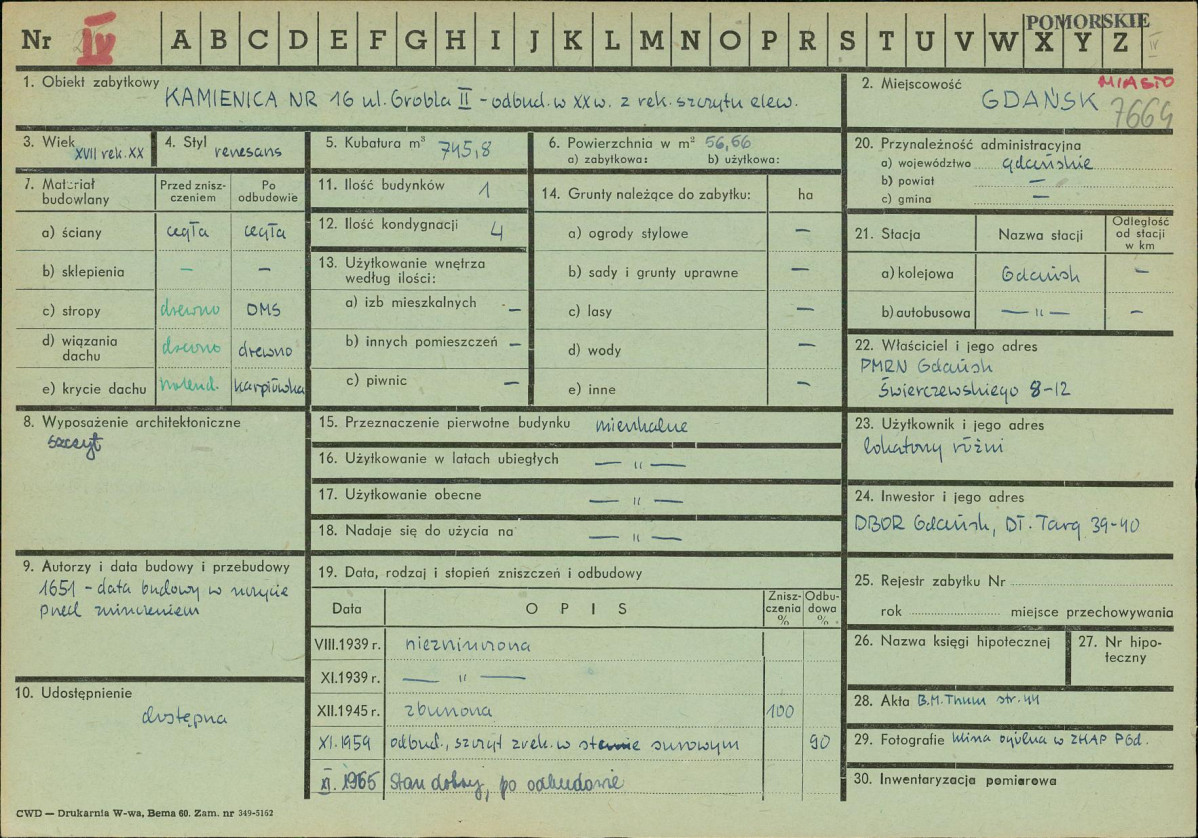 POMORSKIE
Nr IV A B C D E F G H I J K L M N O P R S T U V W X Y Z IV
1. Obiekt zabytkowy
KAMIENICA NR 16 ul. Grobla II - odbud. w XX w. z rek. szczytu elew.
2. Miejscowość MIASTO
GDAŃSK 7664
3. Wiek
XVII rek. XX
4. Styl
renesans
5. Kubatura m³ 745,8
6. Powierzchnia w m² 56,66
a) zabytkowa: b) użytkowa:
20. Przynależność administracyjna
a) województwo gdańskie
b) powiat —
c) gmina —
7. Materiał budowlany
Przed zniszczeniem
Po odbudowie
a) ściany cegła cegła
b) sklepienia – –
c) stropy drewno DMS
d) wiązania dachu drewno drewno
e) krycie dachu holend. karpiówka
11. Ilość budynków 1
12. Ilość kondygnacji 4
13. Użytkowanie wnętrza
według ilości:
a) izb mieszkalnych —
b) innych pomieszczeń —
c) piwnic —
14. Grunty należące do zabytku: ha
a) ogrody stylowe —
b) sady i grunty uprawne —
c) lasy —
d) wody —
e) inne —
21. Stacja Nazwa stacji Odległość od stacji w km
a) kolejowa Gdańsk –
b) autobusowa — " — –
22. Właściciel i jego adres
PMRN Gdańsk
Świerczewskiego 8-12
8. Wyposażenie architektoniczne
szczyt
15. Przeznaczenie pierwotne budynku mieszkalne
16. Użytkowanie w latach ubiegłych — " —
17. Użytkowanie obecne — " —
18. Nadaje się do użycia na — " —
23. Użytkownik i jego adres
lokatorzy różni
24. Inwestor i jego adres
DBOR Gdańsk, Dł. Targ 39-40
9. Autorzy i data budowy i przebudowy
1651 - data budowy w szczycie
przed zniszczeniem
19. Data, rodzaj i stopień zniszczeń i odbudowy
Data O P I S Zniszczenia % Odbudowa %
VIII.1939 r. niezniszczona
XI.1939 r. — " —
XII.1945 r. zburzona 100
XI.1959 odbud., szczyt zrek. w stanie surowym 90
XI.1965 Stan dobry, po odbudowie
25. Rejestr zabytku Nr
rok miejsce przechowywania
26. Nazwa księgi hipotecznej
27. Nr hipoteczny
10. Udostępnienie
dostępna
28. Akta B.M. Thum str. 44
29. Fotografie klisza ogólna w ZHAP PGd.
30. Inwentaryzacja pomiarowa
CWD — Drukarnia W-wa, Bema 60. Zam. nr 349-5162